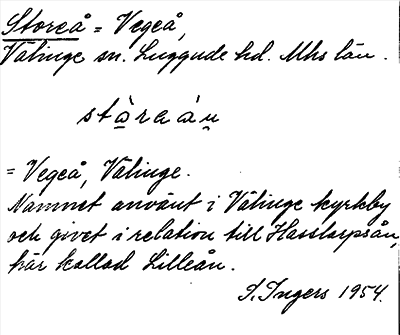 Storeå = Vegeå,
Välinge sn. Luggude hd. Mhs län.
stɑ̀reɑ́n̥
= Vegeå, Välinge.
Namnet använt i Välinge kyrkby
och givet i relation till Hasslarpsån,
här kallad Lilleån.
S. Ingers 1954.